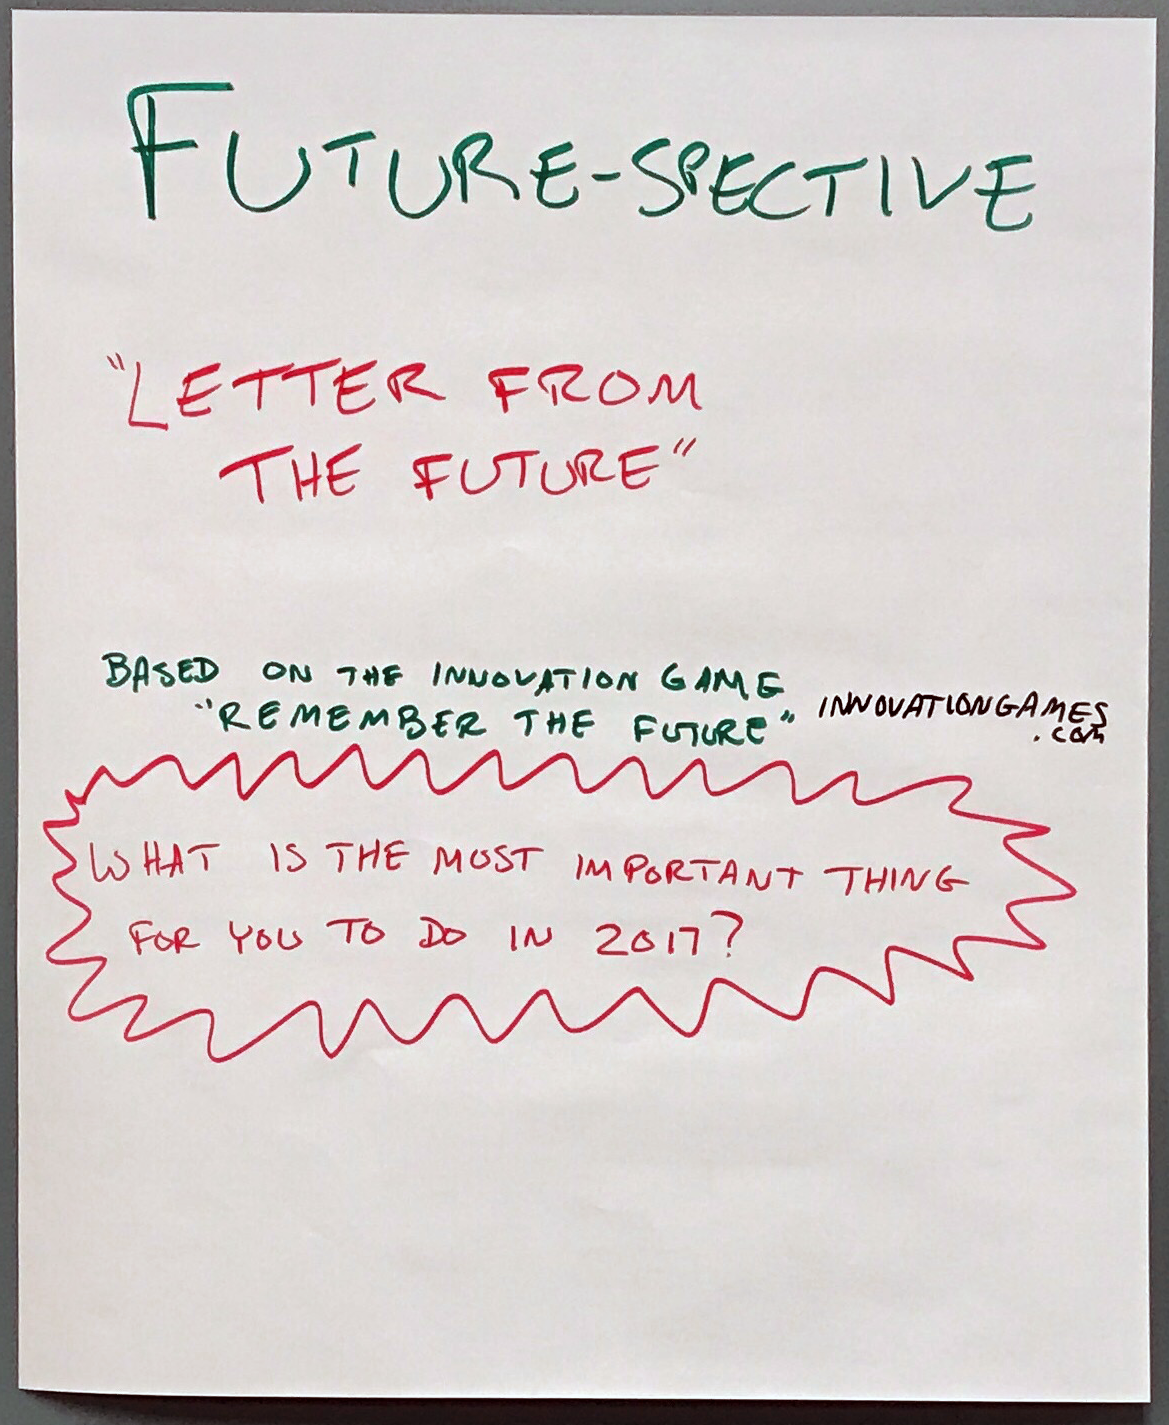 FUTURE-SPECTIVE
"LETTER FROM
THE FUTURE"
BASED ON THE INNOVATION GAME
"REMEMBER THE FUTURE"
INNOVATIONGAMES
.com
WHAT IS THE MOST IMPORTANT THING
FOR YOU TO DO IN 2017?